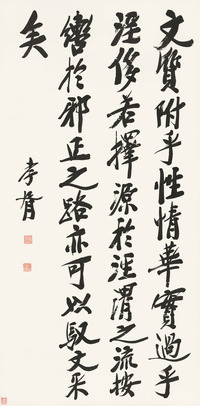 文質附乎性情華實過乎
淫侈若擇源於涇渭之流按
轡於邪正之路亦可以馭文采
矣
孝胥